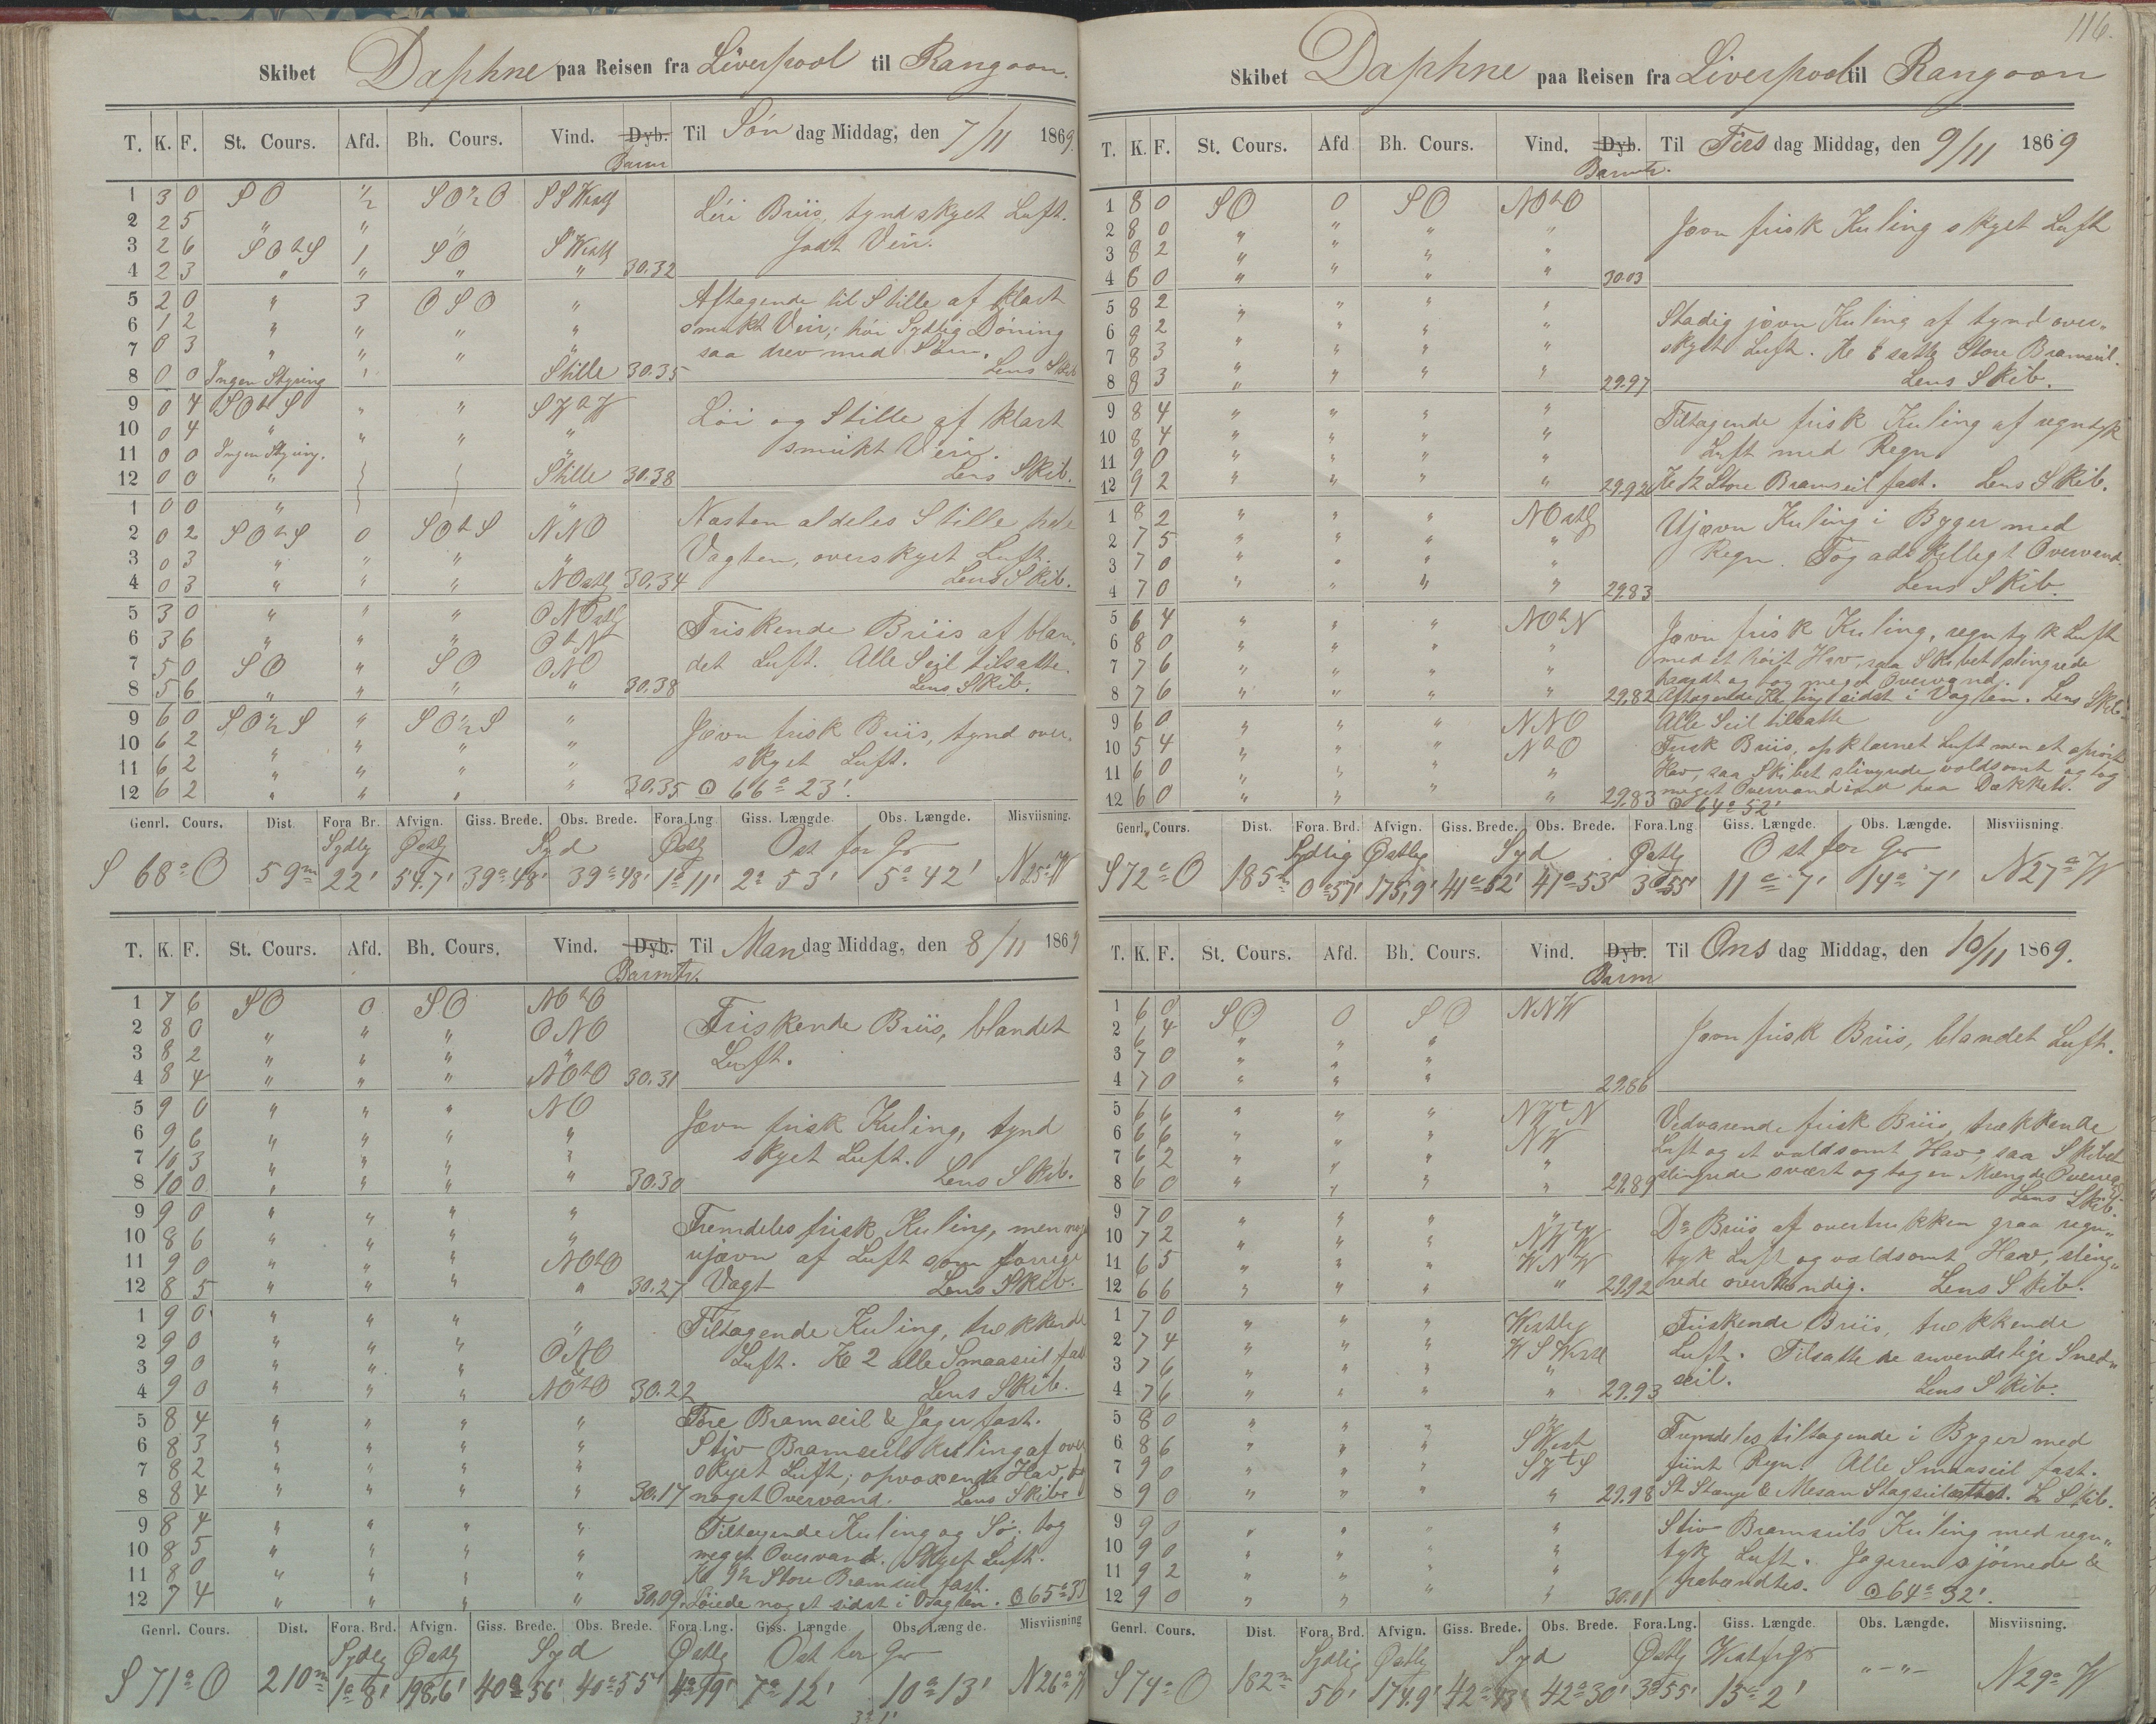 Skibet Daphne paa Reisen fra Liverpool til Rangoon.
T. K. F. St. Cours. Afd. Bh. Cours. Vind. Dyb. Barm Til Søn dag Middag, den 7/11 1869.
1 3 0 SO ½ SO½O SSWestl
2 2 5 " " "
3 2 6 SOtS 1 SO SWestl
4 2 3 " " " " 30.32
Løi Briis, tyndskyet Luft.
Godt Veir.
5 2 0 " 3 OSO "
6 1 2 " " " "
7 0 3 " " " "
8 0 0 Ingen Styring Stille 30.35
Aftagende til Stille af klart
smukt Veir; høi Sydlig Dóning
saa drev med Søen.
Lens Skib
9 0 4 SOtS " " SWtW
10 0 4 " " " "
11 0 0 Ingen Styring. "
12 0 0 " Stille 30.38
Løi og Stille af klart
smukt Veir.
Lens Skib.
1 0 0 " "
2 0 2 SOtS 0 SOtS NNO
3 0 3 " " " "
4 0 3 " " " NOstl 30.34
Næsten aldeles Stille hele
Vagten, overskyet Luft.
Lens Skib.
5 3 0 " " " ONOstl
6 3 6 " " " OtN
7 5 0 SO " SO ONO
8 5 6 " " " " 30.38
Friskende Briis af blan,
det Luft. Alle Seil tilsatte.
Lens Skib.
9 6 0 SO½S " SO½S "
10 6 2 " " " "
11 6 2 " " " "
12 6 2 " " " " 30.35
Jævn frisk Briis, tynd over.
skyet Luft.
⊙ 66° 23'.
Genrl. Cours. Dist. Fora. Br. Afvign. Giss. Brede. Obs. Brede. Fora. Lng. Giss. Længde. Obs. Længde. Misviisning.
Sydlig Østlg Syd Østlg Ost for Gr
S 68° O 59m 22' 54.7' 39°48' 39°48' 1°11' 2° 53' 5° 42' N25°W
T. K. F. St. Cours. Afd. Bh. Cours. Vind. Dyb. Barmtr. Til Man dag Middag, den 8/11 1869
1 7 6 SO 0 SO NOtO
2 8 0 " " " ONO
3 8 2 " " " "
4 8 4 " " " NOtO 30.31
Friskende Briis, blandet
Luft.
5 9 0 " " " NO
6 9 6 " " " "
7 10 3 " " " "
8 10 0 " " " " 30.30
Jævn frisk Kuling, tynd
skyet Luft.
Lens Skib.
9 9 0 " " " "
10 8 6 " " " "
11 9 0 " " " NOtO
12 8 5 " " " " 30.27
Fremdeles frisk Kuling, men
ujævn af Luft som forrige
Vagt Lens Skib.
1 9 0 " " " "
2 9 0 " " " ONO
3 9 0 " " " "
4 9 0 " " " NOtO 30.22
Tiltagende Kuling, trækkende
Luft. Kl 2 alle Smaaseil fast
Lens Skib.
5 8 4 " " " "
6 8 3 " " " "
7 8 2 " " " "
8 8 4 " " " " 30.17
Fore Bramseil & Jager fast.
Stiv Bramseils kuling af over
skyet Luft; opvoxende Hav,
noget Overvand. Lens Skib
9 8 4 " " " "
10 8 5 " " " "
11 8 0 " " " "
12 7 4 " " " " 30.09
Tiltagende Kuling og Sø. tog
meget Overvand. Skyet Luft.
Kl 9½ Store Bramseil fast.
Løiede noget sidst i Vagten. ⊙ 65°33
Genrl. Cours. Dist. Fora. Brd. Afvign. Giss. Brede. Obs. Brede. Fora. Lng. Giss. Længde Obs. Længde. Misviisning
Sydlg Østlg Syd Østlg Ost for Gr
S 71° O 210m 1°8' 198,6' 40° 56' 40°55' 4°19' 7° 12' 10° 13' N26°W
3° 1'
116.
Skibet Daphne paa Reisen fra Liverpool til Rangoon
T. K. F. St. Cours. Afd Bh. Cours. Vind. Dyb. Barmtr. Til Tirs dag Middag, den 9/11 1869
1 8 0 SO 0 SO NOtO
2 8 0 " " " "
3 8 2 " " " "
4 8 0 " " " " 30.03
Jævn frisk Kuling skyet Luft
5 8 2 " " " "
6 8 2 " " " "
7 8 3 " " " "
8 8 3 " " " " 29.97
Stadig jævn Kuling af tynd over„
skyet Luft. Kl 6 satte Store Bramseil.
Lens Skib.
9 8 4 " " " "
10 8 4 " " " "
11 9 0 " " " "
12 9 2 " " " " 29.92
Tiltagende frisk Kuling af regntyk
Luft med Regn.
Kl 12 Store Bramseil fast. Lens Skib.
1 8 2 " " " NOstlg
2 7 5 " " " "
3 7 0 " " " "
4 7 0 " " " " 29.83
Ujævn Kuling i Byger med
Regn. Tog adskilligt Overvand.
Lens Skib.
5 6 4 " " " NOtN
6 8 0 " " " "
7 7 6 " " " "
8 7 6 " " " " 29.82
Jævn frisk Kuling, regntyk Luft
med et høit Hav, saa Skibet slingrede
haardt og tog meget Overvand.
Aftagende Kuling sidst i Vagten. Lens Skib.
9 6 0 " " " NNO
10 5 4 " " " NtO
11 6 0 " " " "
12 6 0 " " " " 29.83
Alle Seil tilsatte
Frisk Briis, opklarnet Luft men et oprørt
Hav, saa Skibet slingrede voldsomt og tog
meget Overvand ind paa Dækket.
⊙ 64° 52'
Genrl. Cours. Dist. Fora. Brd. Afvign. Giss. Brede. Obs. Brede. Fora.Lng Giss. Længde. Obs. Længde. Misviisning.
Sydlig Østlig Syd Østlg Ost for Gr
S72°O 185m 0°57' 175,9' 41°52' 41°53' 3°55' 11° 7' 14° 7' N27°W
T. K. F. St. Cours. Afd. Bh. Cours. Vind. Dyb. Barm Til Ons dag Middag, den 10/11 1869.
1 6 0 SO 0 SO NNW
2 6 4 " " "
3 7 0 " " "
4 7 0 " " " 29.86
Jævn frisk Briis, blandet Luft.
5 6 6 " " " NWtN
6 6 6 " " " NW
7 6 2 " " " "
8 6 0 " " " " 29.89
Vedvarende frisk Briis, trækkende
Luft og et voldsomt Hav, saa Skibet
slingrede svært og tog en Mængde Overvand.
Lens Skib.
9 7 0 " " " "
10 7 2 " " " NWtW
11 6 5 " " " WNW
12 6 6 " " " " 29.92
Do Briis af overtrukken graa regn„
tyk Luft og voldsomt Hav, sling„
rede overhændig. Lens Skib.
1 7 0 " " " Westlig
2 7 4 " " " WSWestl
3 7 6 " " " "
4 7 6 " " " " 29.93
Friskende Briis, trækkende
Luft. Tilsatte de anvendelige Sned„
seil. Lens Skib.
5 8 0 " " " "
6 8 6 " " " SWest
7 9 0 " " " SWtS
8 9 0 " " " " 29.98
Fremdeles tiltagende i Byger med
fiint Regn. Alle Smaaseil fast.
St Stange & Mesan Stagseil L Skib.
9 9 0 " " " "
10 9 0 " " " "
11 9 2 " " " "
12 9 0 " " " " 30.01
Stiv Bramseils Kuling med regn„
tyk Luft. Jageren &
⊙ 64° 32'.
Genrl. Cours. Dist. Fora. Brd. Afvign. Giss. Brede. Obs. Brede. Fora.Lng. Giss. Længde. Obs. Længde. Misviisning.
Sydlig Østlg Syd Østlg
S74°O 182m 50' 174.9' 42°43' 42°30' 3°55' 15° 2' "—"— N29°W